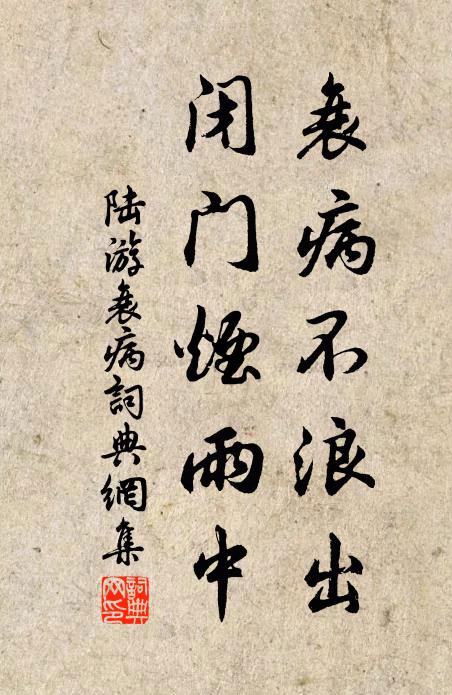 衰病不浪出
闭门煙雨中
陆游衰病詞典網集
詞典網印